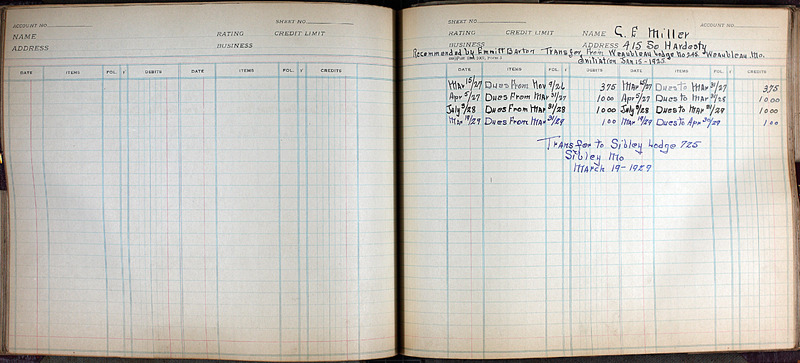 ACCOUNT NO.
SHEET NO.
NAME
RATING CREDIT LIMIT
ADDRESS
BUSINESS
DATE ITEMS FOL. √ DEBITS DATE ITEMS FOL. √ CREDITS
SHEET NO.
ACCOUNT NO.
RATING CREDIT LIMIT NAME C. E Miller
BUSINESS ADDRESS 415 So Hardesty
Recommended by Emmitt Barton Transfer From Weaubleau Lodge No 248 Weaubleau Mo.
initiation Jan 15-1925
DATE ITEMS FOL. √ DEBITS DATE ITEMS FOL. √ CREDITS
Mar 15/27 Dues From Nov 9/26 3 75 Mar 15/27 Dues to Mar 31/27 3 75
Apr 5/27 Dues From Mar 31/27 10 00 Apr 5/27 Dues to Mar 31/28 10 00
July 9/28 Dues From Mar 31/28 10 00 July 9/28 Dues to Mar 31/29 10 00
Mar 19/29 Dues From Mar 31/29 1 00 Mar 19/29 Dues to Apr 30/29 1 00
Transfer to Sibley Lodge 725
Sibley Mo
March 19-1929